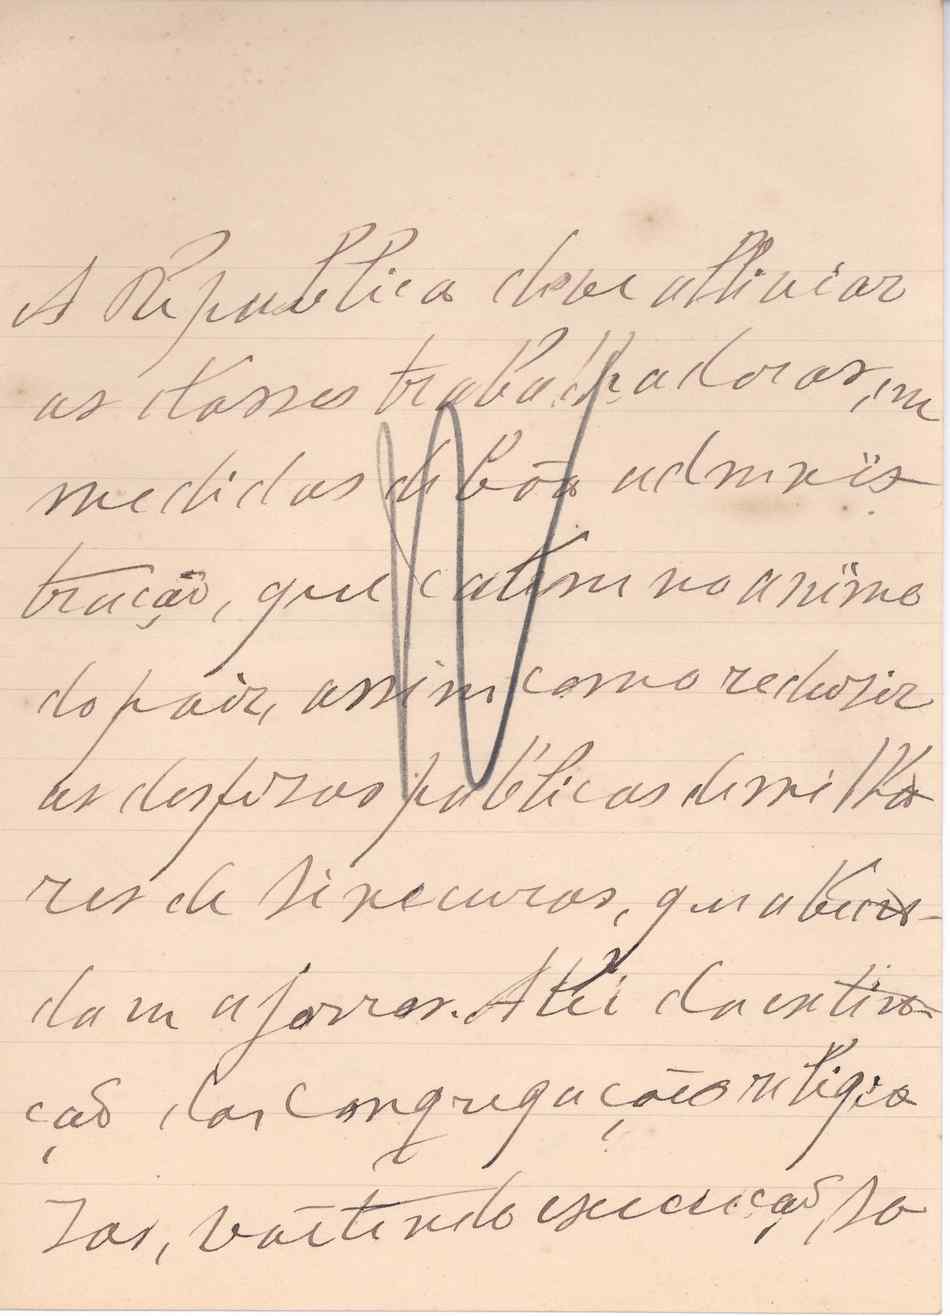 A Republica deve alliviar
as classes trabalhadoras, em
medidas de bôa adminis
tração, que calem no animo
do paiz, assim como reduzir
as despezas públicas de milha
res de sinecuras, que abun-
dam a jorros. A lei da extin-
ção das Congregações religio
zas, tendo execução, so